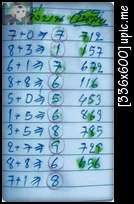 7+0⇒7 712
8+3⇒1 157
6+1⇒7 672
8+8⇒6 116
5+0⇒5 453
1+5⇒6 863
3+5⇒8 785
2+7⇒9 729
8+8⇒6 696
7+1⇒8
[336x600] upic.me